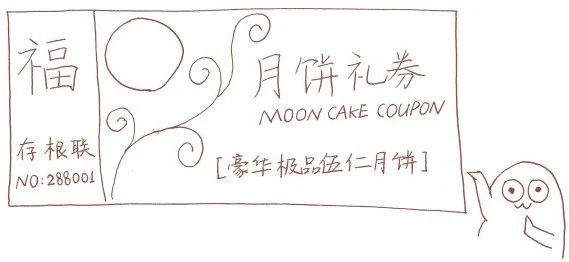 福
存根联
NO:288001
月饼礼券
MOON CAKE COUPON
[豪华极品伍仁月饼]